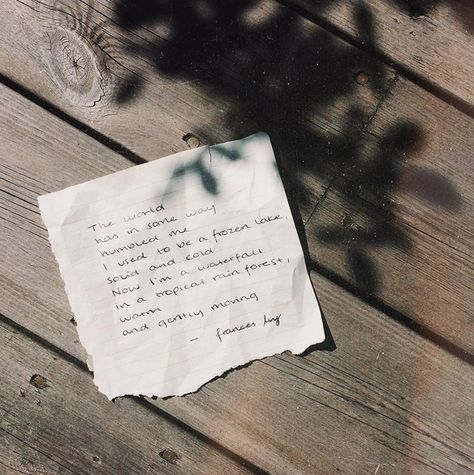 The world
has in some way
humbled me
I used to be a frozen lake,
solid and cold
Now I'm a waterfall
in a tropical rain forest,
warm
and gently moving
– frances